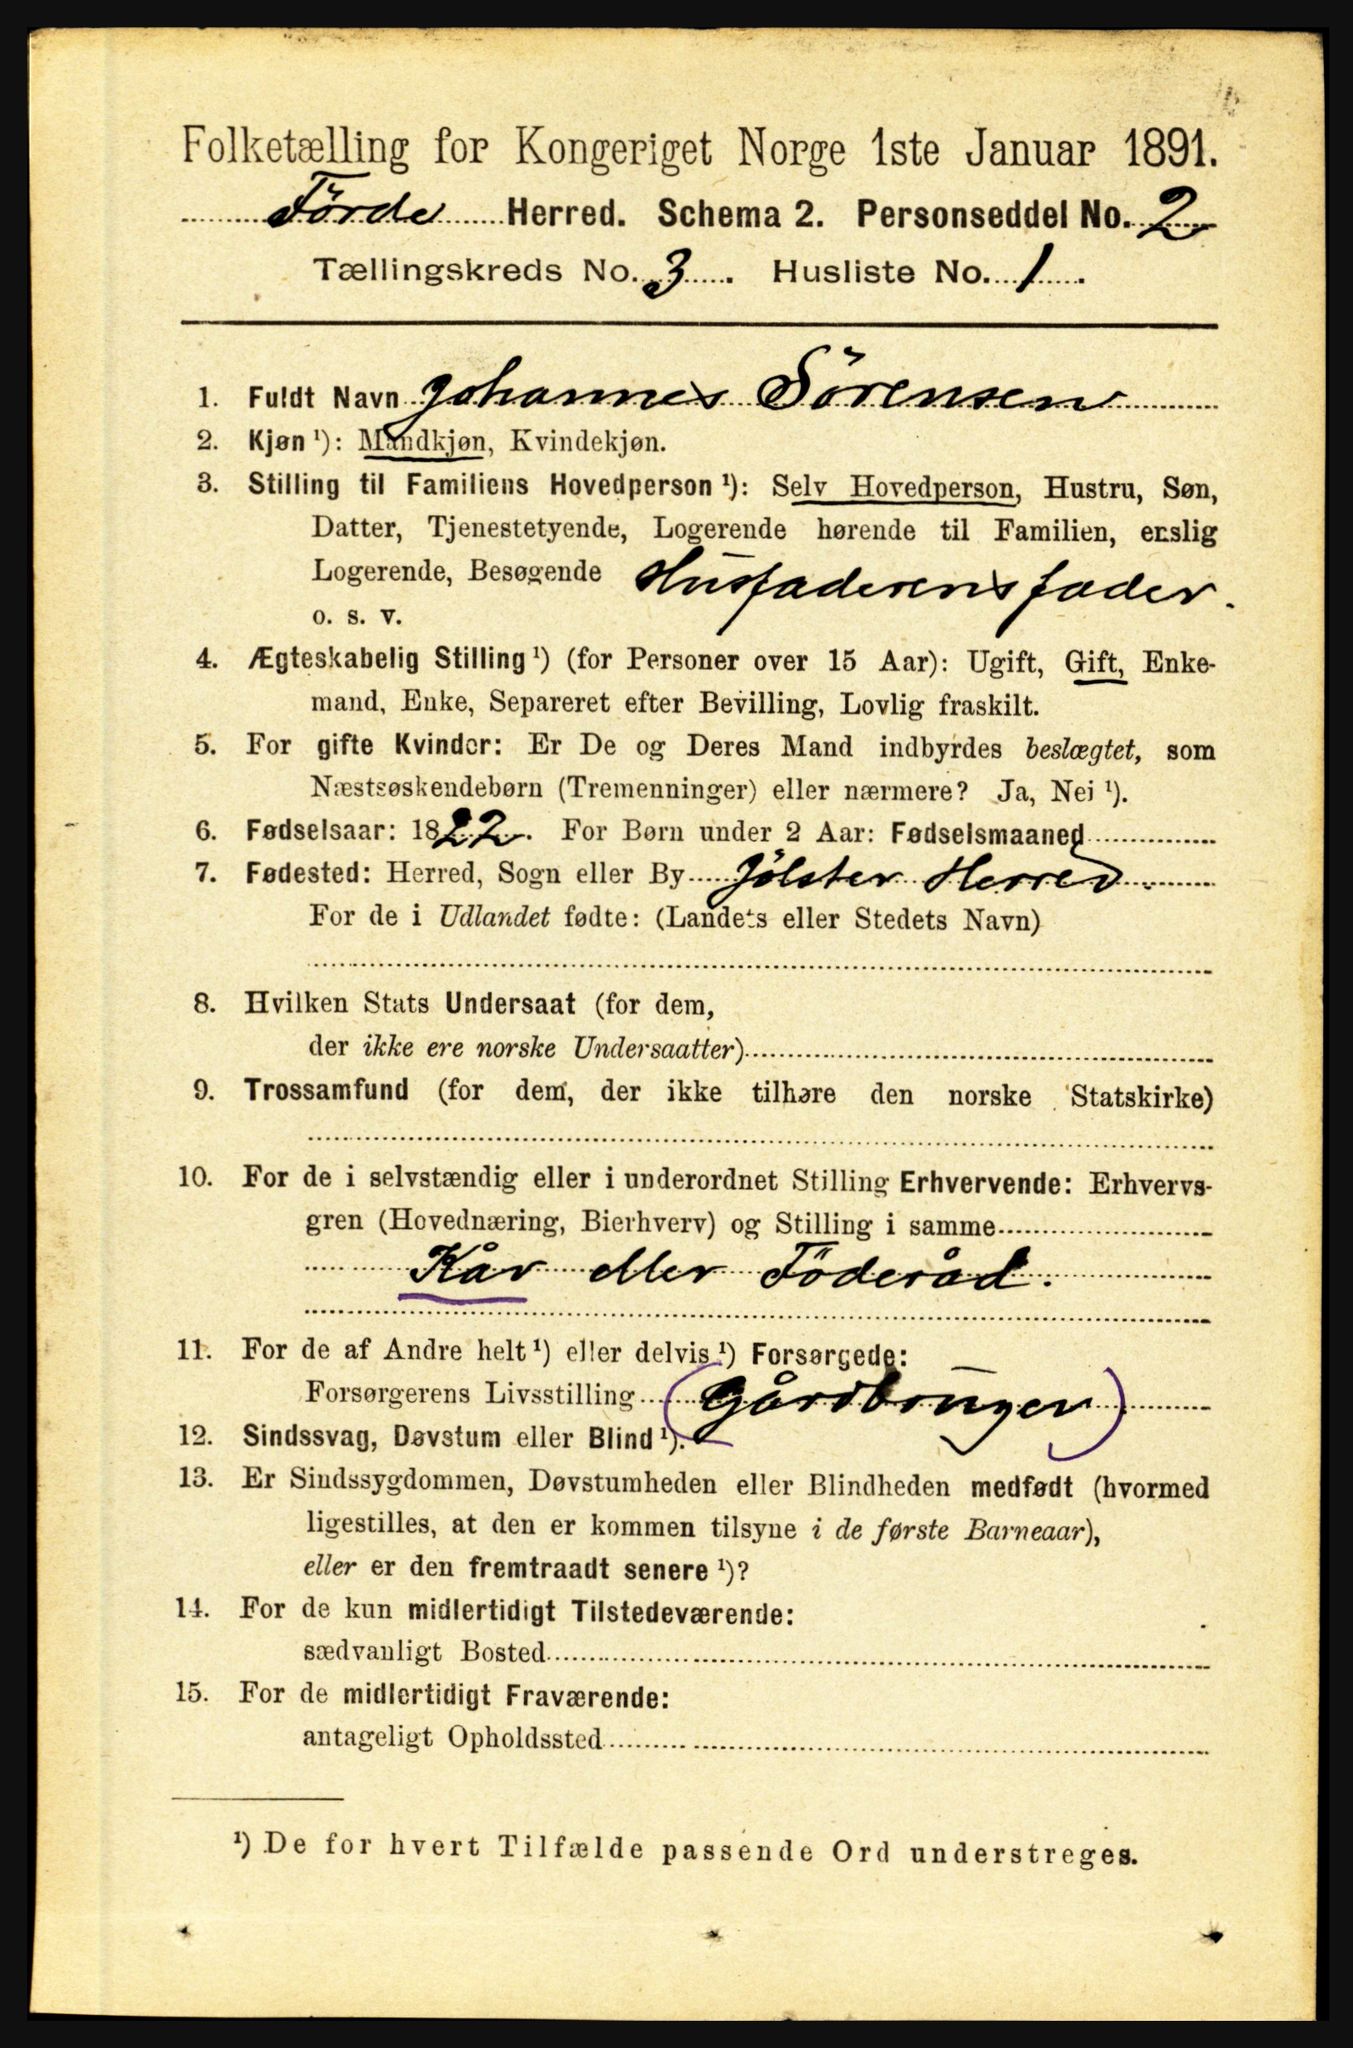 Folketælling for Kongeriget Norge 1ste Januar 1891.
Förde Herred. Schema 2. Personseddel No. 2
Tællingskreds No. 3. Husliste No. 1.
1. Fuldt Navn Johannes Sörensen
2. Kjøn ¹): Mandkjøn, Kvindekjøn.
3. Stilling til Familiens Hovedperson ¹): Selv Hovedperson, Hustru, Søn,
Datter, Tjenestetyende, Logerende hørende til Familien, enslig
Logerende, Besøgende Husfaderens fader.
o. s. v.
4. Ægteskabelig Stilling ¹) (for Personer over 15 Aar): Ugift, Gift, Enke-
mand, Enke, Separeret efter Bevilling, Lovlig fraskilt.
5. For gifte Kvinder: Er De og Deres Mand indbyrdes beslægtet, som
Næstsøskendebørn (Tremenninger) eller nærmere? Ja, Nei ¹).
6. Fødselsaar: 1822. For Børn under 2 Aar: Fødselsmaaned
7. Fødested: Herred, Sogn eller By Jölster Herred.
For de i Udlandet fødte: (Landets eller Stedets Navn)
8. Hvilken Stats Undersaat (for dem,
der ikke ere norske Undersaatter)
9. Trossamfund (for dem, der ikke tilhøre den norske Statskirke)
10. For de i selvstændig eller i underordnet Stilling Erhvervende: Erhvervs-
gren (Hovednæring, Bierhverv) og Stilling i samme
Kår eller Föderåd.
11. For de af Andre helt ¹) eller delvis ¹) Forsørgede:
Forsørgerens Livsstilling (Gårdbruger)
12. Sindssvag, Døvstum eller Blind ¹).
13. Er Sindssygdommen, Døvstumheden eller Blindheden medfødt (hvormed
ligestilles, at den er kommen tilsyne i de første Barneaar),
eller er den fremtraadt senere ¹)?
14. For de kun midlertidigt Tilstedeværende:
sædvanligt Bosted
15. For de midlertidigt Fraværende:
antageligt Opholdssted
¹) De for hvert Tilfælde passende Ord understreges.